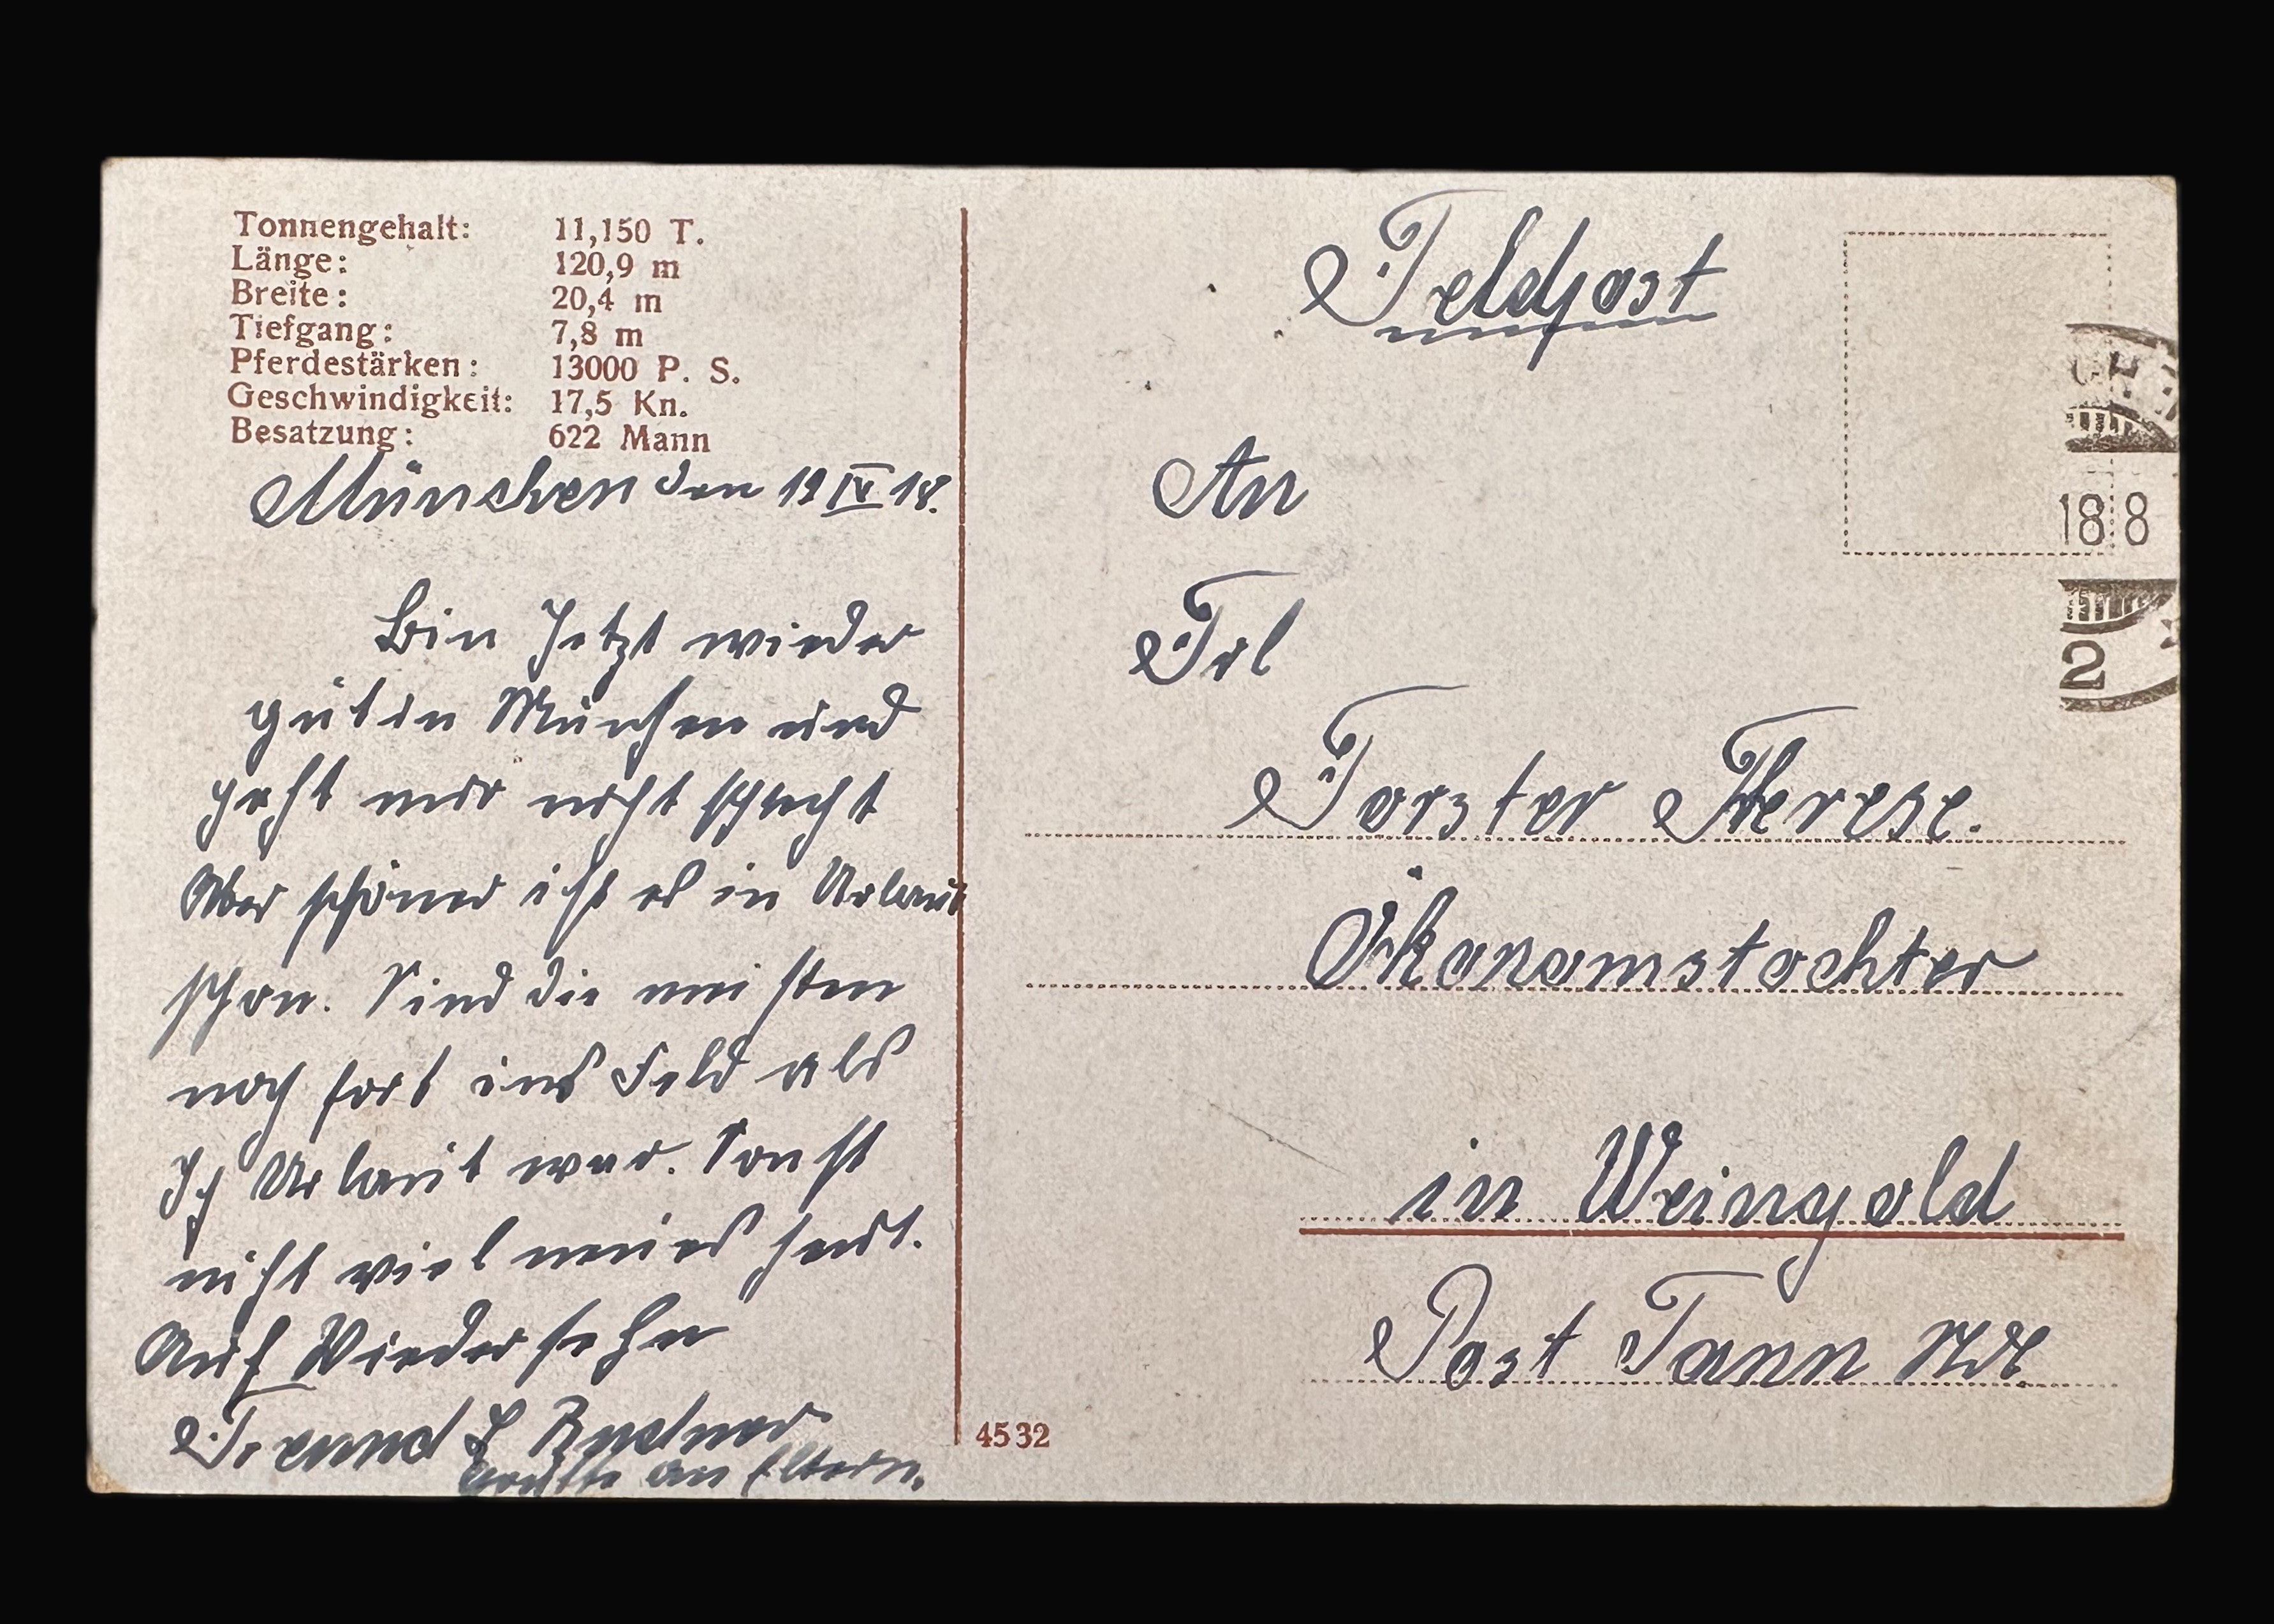 Tonnengehalt: 11,150 T.
Länge: 120,9 m
Breite: 20,4 m
Tiefgang: 7,8 m
Pferdestärken: 13000 P. S.
Geschwindigkeit: 17,5 Kn.
Besatzung: 622 Mann
München den 19 IV 18.
Bin Jetzt wieder
gut in München und
geht mir nicht schlecht
Aber schöner ist es in Urlaub
schon. Sind die meisten
noch fort ins Feld als
Ich Urlaub war. Sonst
nicht viel neues hert.
Auf Wiedersehn
Freund L
Grüsse an Eltern.
4532
Feldpost
18 8
2
An
Frl
Forster Therese.
Ökonomstochter
in Weingold
Post Tann